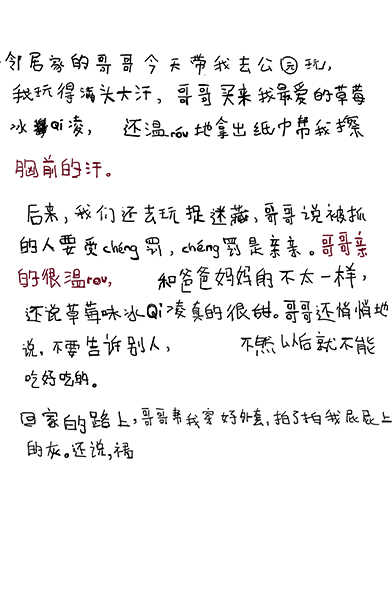 邻居家的哥哥今天带我去公园玩，
我玩得满头大汗，哥哥买来我最爱的草莓
冰Qi凌，还温róu地拿出纸巾帮我擦
胸前的汗。
后来，我们还去玩捉迷藏，哥哥说被抓
的人要受chéng罚，chéng罚是亲亲。哥哥亲
的很温rou，和爸爸妈妈的不太一样，
还说草莓味冰Qi凌真的很甜。哥哥还悄悄地
说，不要告诉别人，不然以后就不能
吃好吃的。
回家的路上，哥哥帮我穿好外套，拍了拍我屁屁上
的灰。还说，